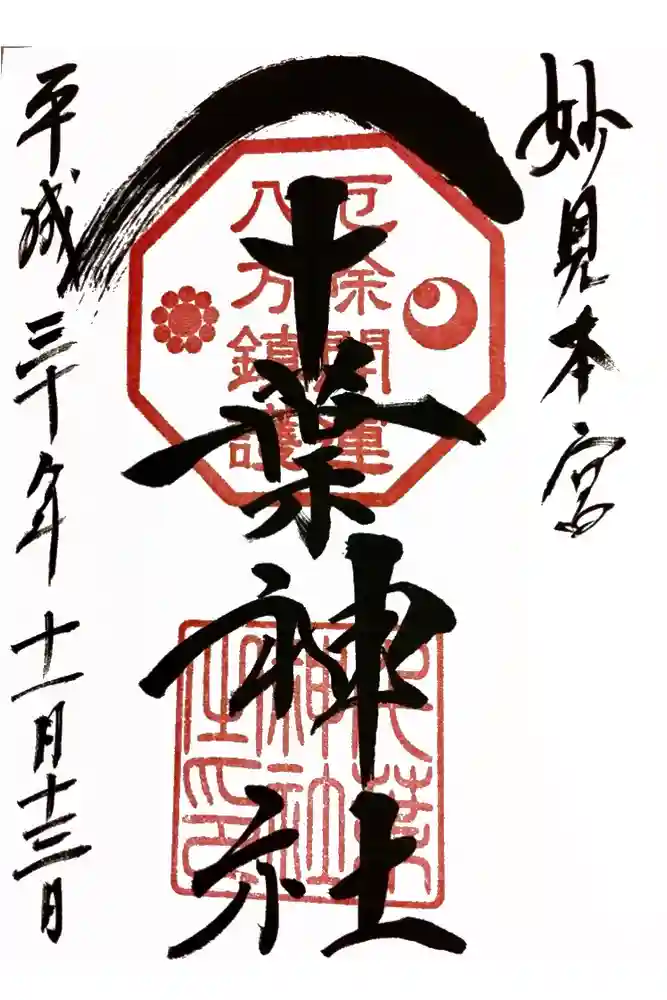 妙見本宮
厄除開運
八方鎮護
千葉神社
千葉
神社
平成三十年十一月十三日